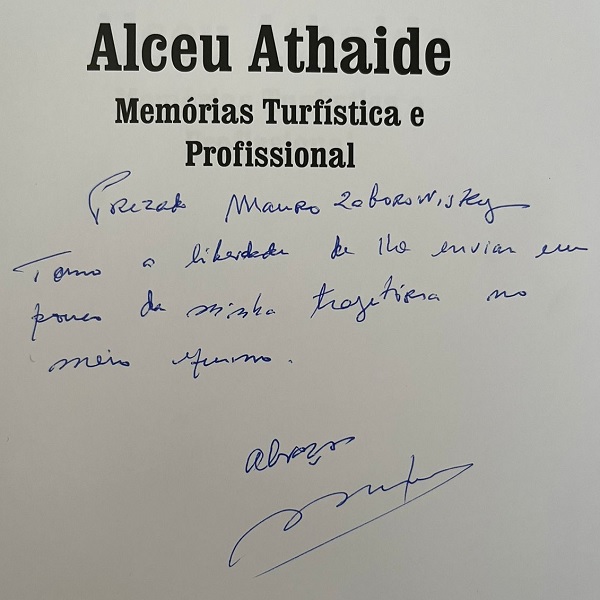 Alceu Athaide
Memórias Turfística e
Profissional
Prezado Mauro Zaborowisky
Tomo a liberdade de lhe enviar um
pouco da minha trajetória no
meio
abraços